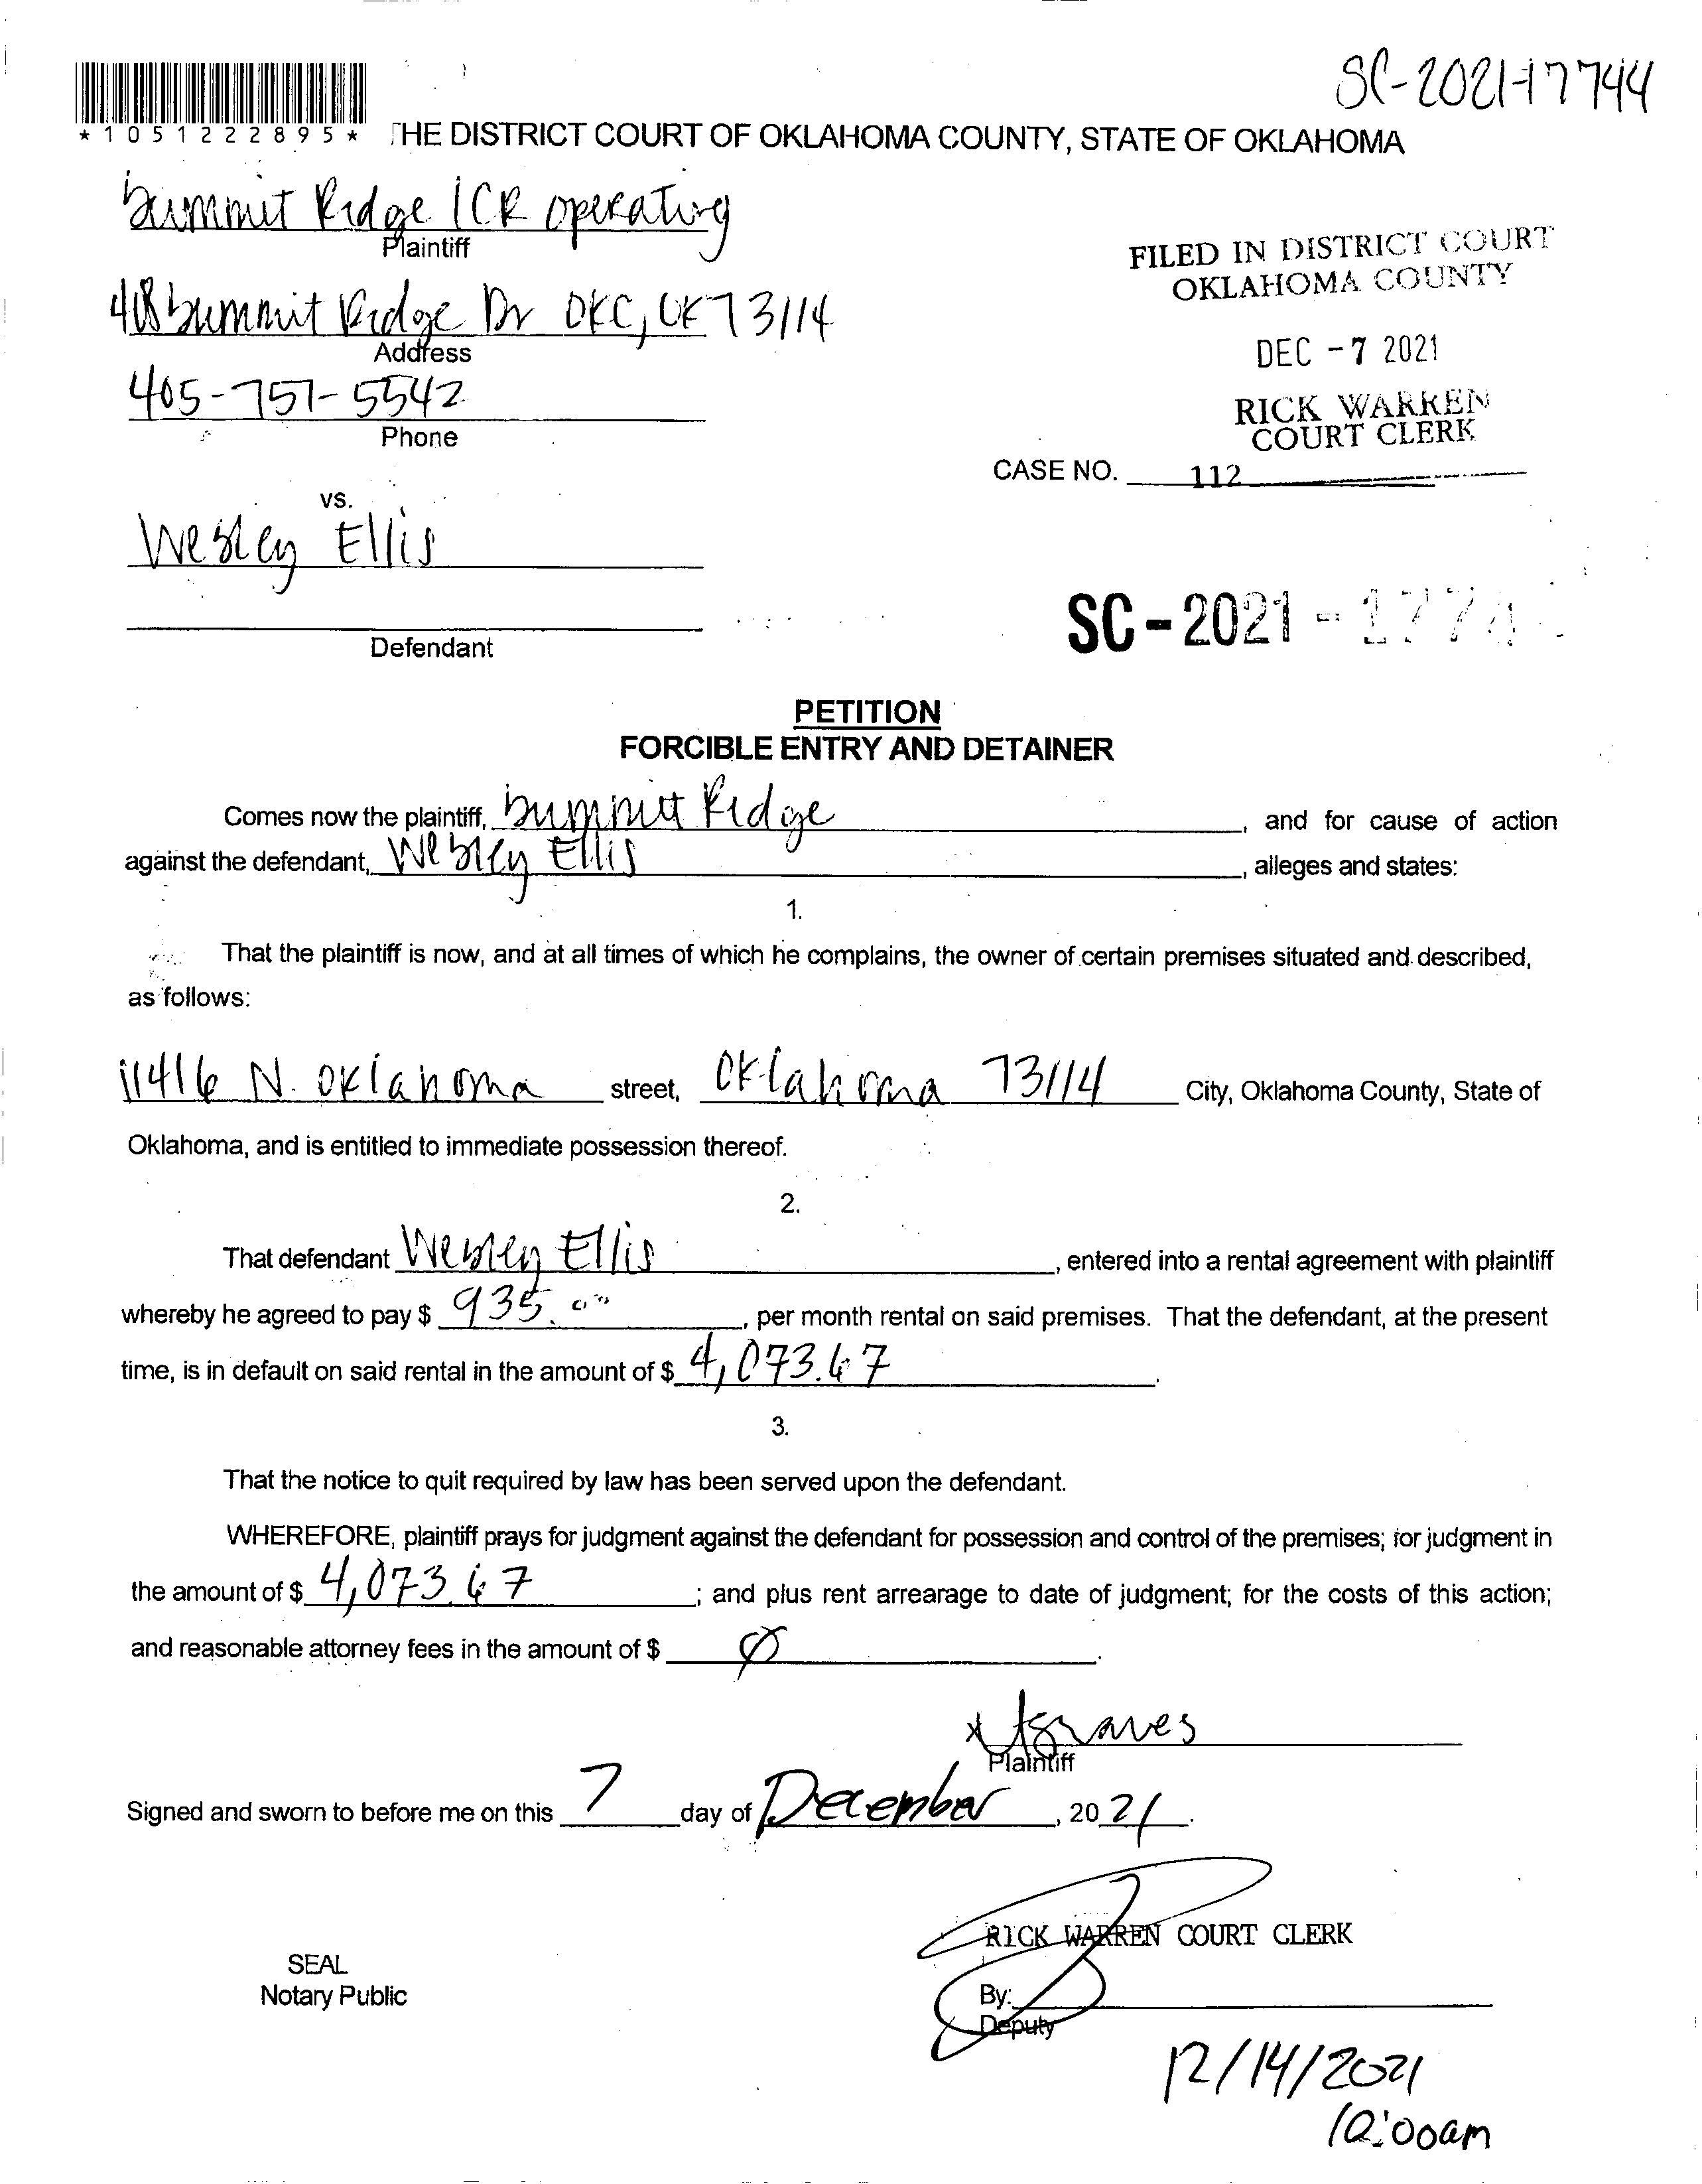 SC-2021-17744
*1051222895*
THE DISTRICT COURT OF OKLAHOMA COUNTY, STATE OF OKLAHOMA
Summit Ridge ICR operating
Plaintiff
FILED IN DISTRICT COURT
OKLAHOMA COUNTY
418 Summit Ridge Dr OKC, OK 73114
Address
DEC - 7 2021
405-757-5542
Phone
RICK WARREN
COURT CLERK
CASE NO. 112
vs.
Wesley Ellis
Defendant
SC - 2021 - 1774
PETITION
FORCIBLE ENTRY AND DETAINER
Comes now the plaintiff, Summit Ridge, and for cause of action
against the defendant, Wesley Ellis, alleges and states:
1.
That the plaintiff is now, and at all times of which he complains, the owner of certain premises situated and described,
as follows:
11416 N. Oklahoma street, Oklahoma 73114 City, Oklahoma County, State of
Oklahoma, and is entitled to immediate possession thereof.
2.
That defendant Wesley Ellis, entered into a rental agreement with plaintiff
whereby he agreed to pay $ 935.00, per month rental on said premises. That the defendant, at the present
time, is in default on said rental in the amount of $ 4,073.67.
3.
That the notice to quit required by law has been served upon the defendant.
WHEREFORE, plaintiff prays for judgment against the defendant for possession and control of the premises; for judgment in
the amount of $ 4,073.67; and plus rent arrearage to date of judgment; for the costs of this action;
and reasonable attorney fees in the amount of $ Ø.
x Graves
Plaintiff
Signed and sworn to before me on this 7 day of December, 2021.
RICK WARREN COURT CLERK
SEAL
Notary Public
By:
Deputy
12/14/2021
10:00am